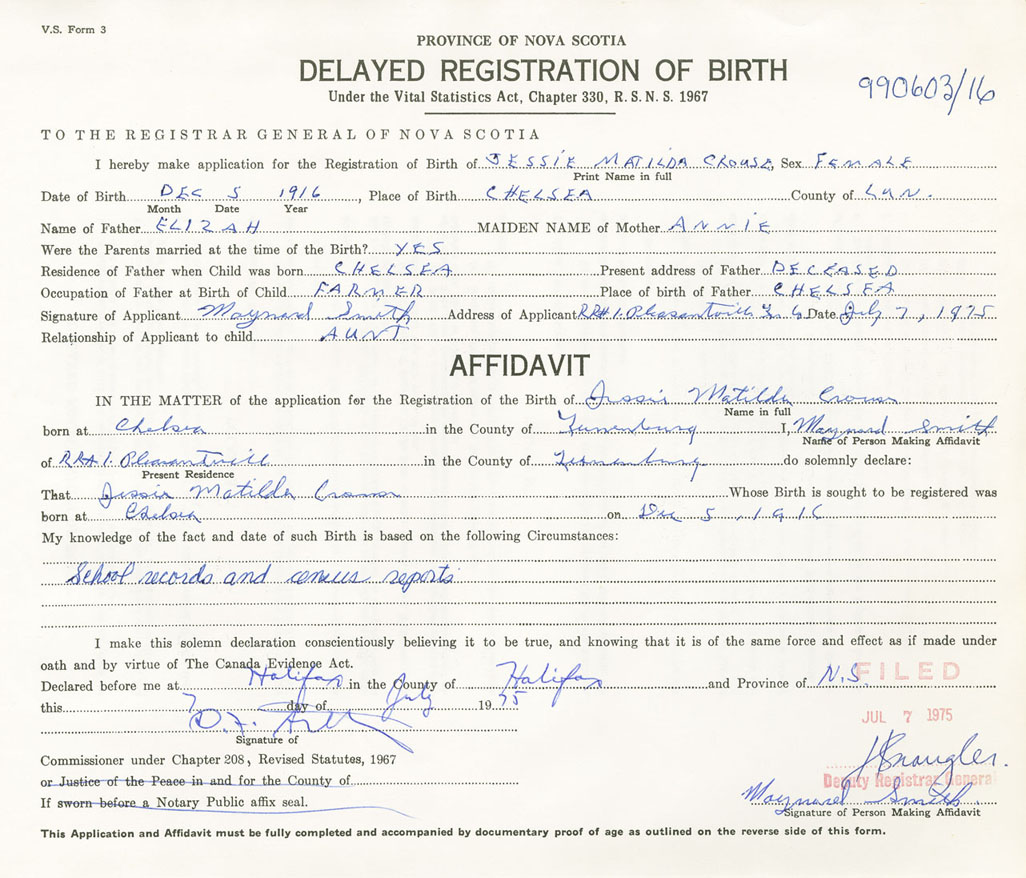 V.S. Form 3
PROVINCE OF NOVA SCOTIA
DELAYED REGISTRATION OF BIRTH
990603/16
Under the Vital Statistics Act, Chapter 330, R.S.N.S. 1967
TO THE REGISTRAR GENERAL OF NOVA SCOTIA
I hereby make application for the Registration of Birth of JESSIE MATILDA CROUSE, Sex FEMALE
Print Name in full
Date of Birth DEC 5 1916, Place of Birth CHELSEA County of LUN.
Month Date Year
Name of Father ELIZAH MAIDEN NAME of Mother ANNIE
Were the Parents married at the time of the Birth? YES
Residence of Father when Child was born CHELSEA Present address of Father DECEASED
Occupation of Father at Birth of Child FARMER Place of birth of Father CHELSEA
Signature of Applicant Maynard Smith Address of Applicant RR#1. Pleasantville Date July 7, 1975
Relationship of Applicant to child AUNT
AFFIDAVIT
IN THE MATTER of the application for the Registration of the Birth of Jessie Matilda Crouse
Name in full
born at Chelsea in the County of Lunenburg I, Maynard Smith
Name of Person Making Affidavit
of RR#1. Pleasantville in the County of Lunenburg do solemnly declare:
Present Residence
That Jessie Matilda Crouse Whose Birth is sought to be registered was
born at Chelsea on Dec 5, 1916
My knowledge of the fact and date of such Birth is based on the following Circumstances:
School records and census reports
I make this solemn declaration conscientiously believing it to be true, and knowing that it is of the same force and effect as if made under
oath and by virtue of The Canada Evidence Act.
Declared before me at Halifax in the County of Halifax and Province of N.S.
FILED
this 7 day of July 1975
JUL 7 1975
Signature of
Commissioner under Chapter 208, Revised Statutes, 1967
or Justice of the Peace in and for the County of
Deputy Registrar General
If sworn before a Notary Public affix seal.
Maynard Smith
Signature of Person Making Affidavit
This Application and Affidavit must be fully completed and accompanied by documentary proof of age as outlined on the reverse side of this form.